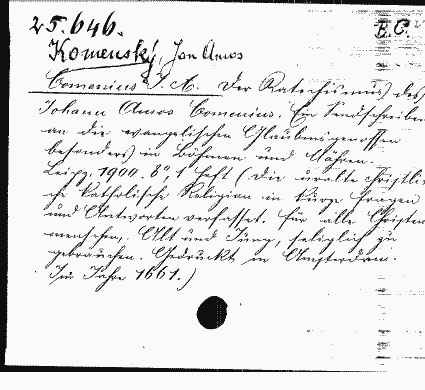 25.646.
B.C.
Komenský, Jan Amos
Comenius J. A. Der Katechismus des
Johann Amos Comenius. Ein Sendschreiben
an die evangelischen Glaubensgenossen
besonders in Böhmen und Mähren.
Leipz. 1900. 8°, 1 Heft (Die uralte christli-
che katholische Religion in kurze Fragen
und Antworten verfasset. Für alle Christen
menschen, Alt und Jung, seliglich zu
gebrauchen. Gedruckt in Amsterdam.
Im Jahre 1661.)